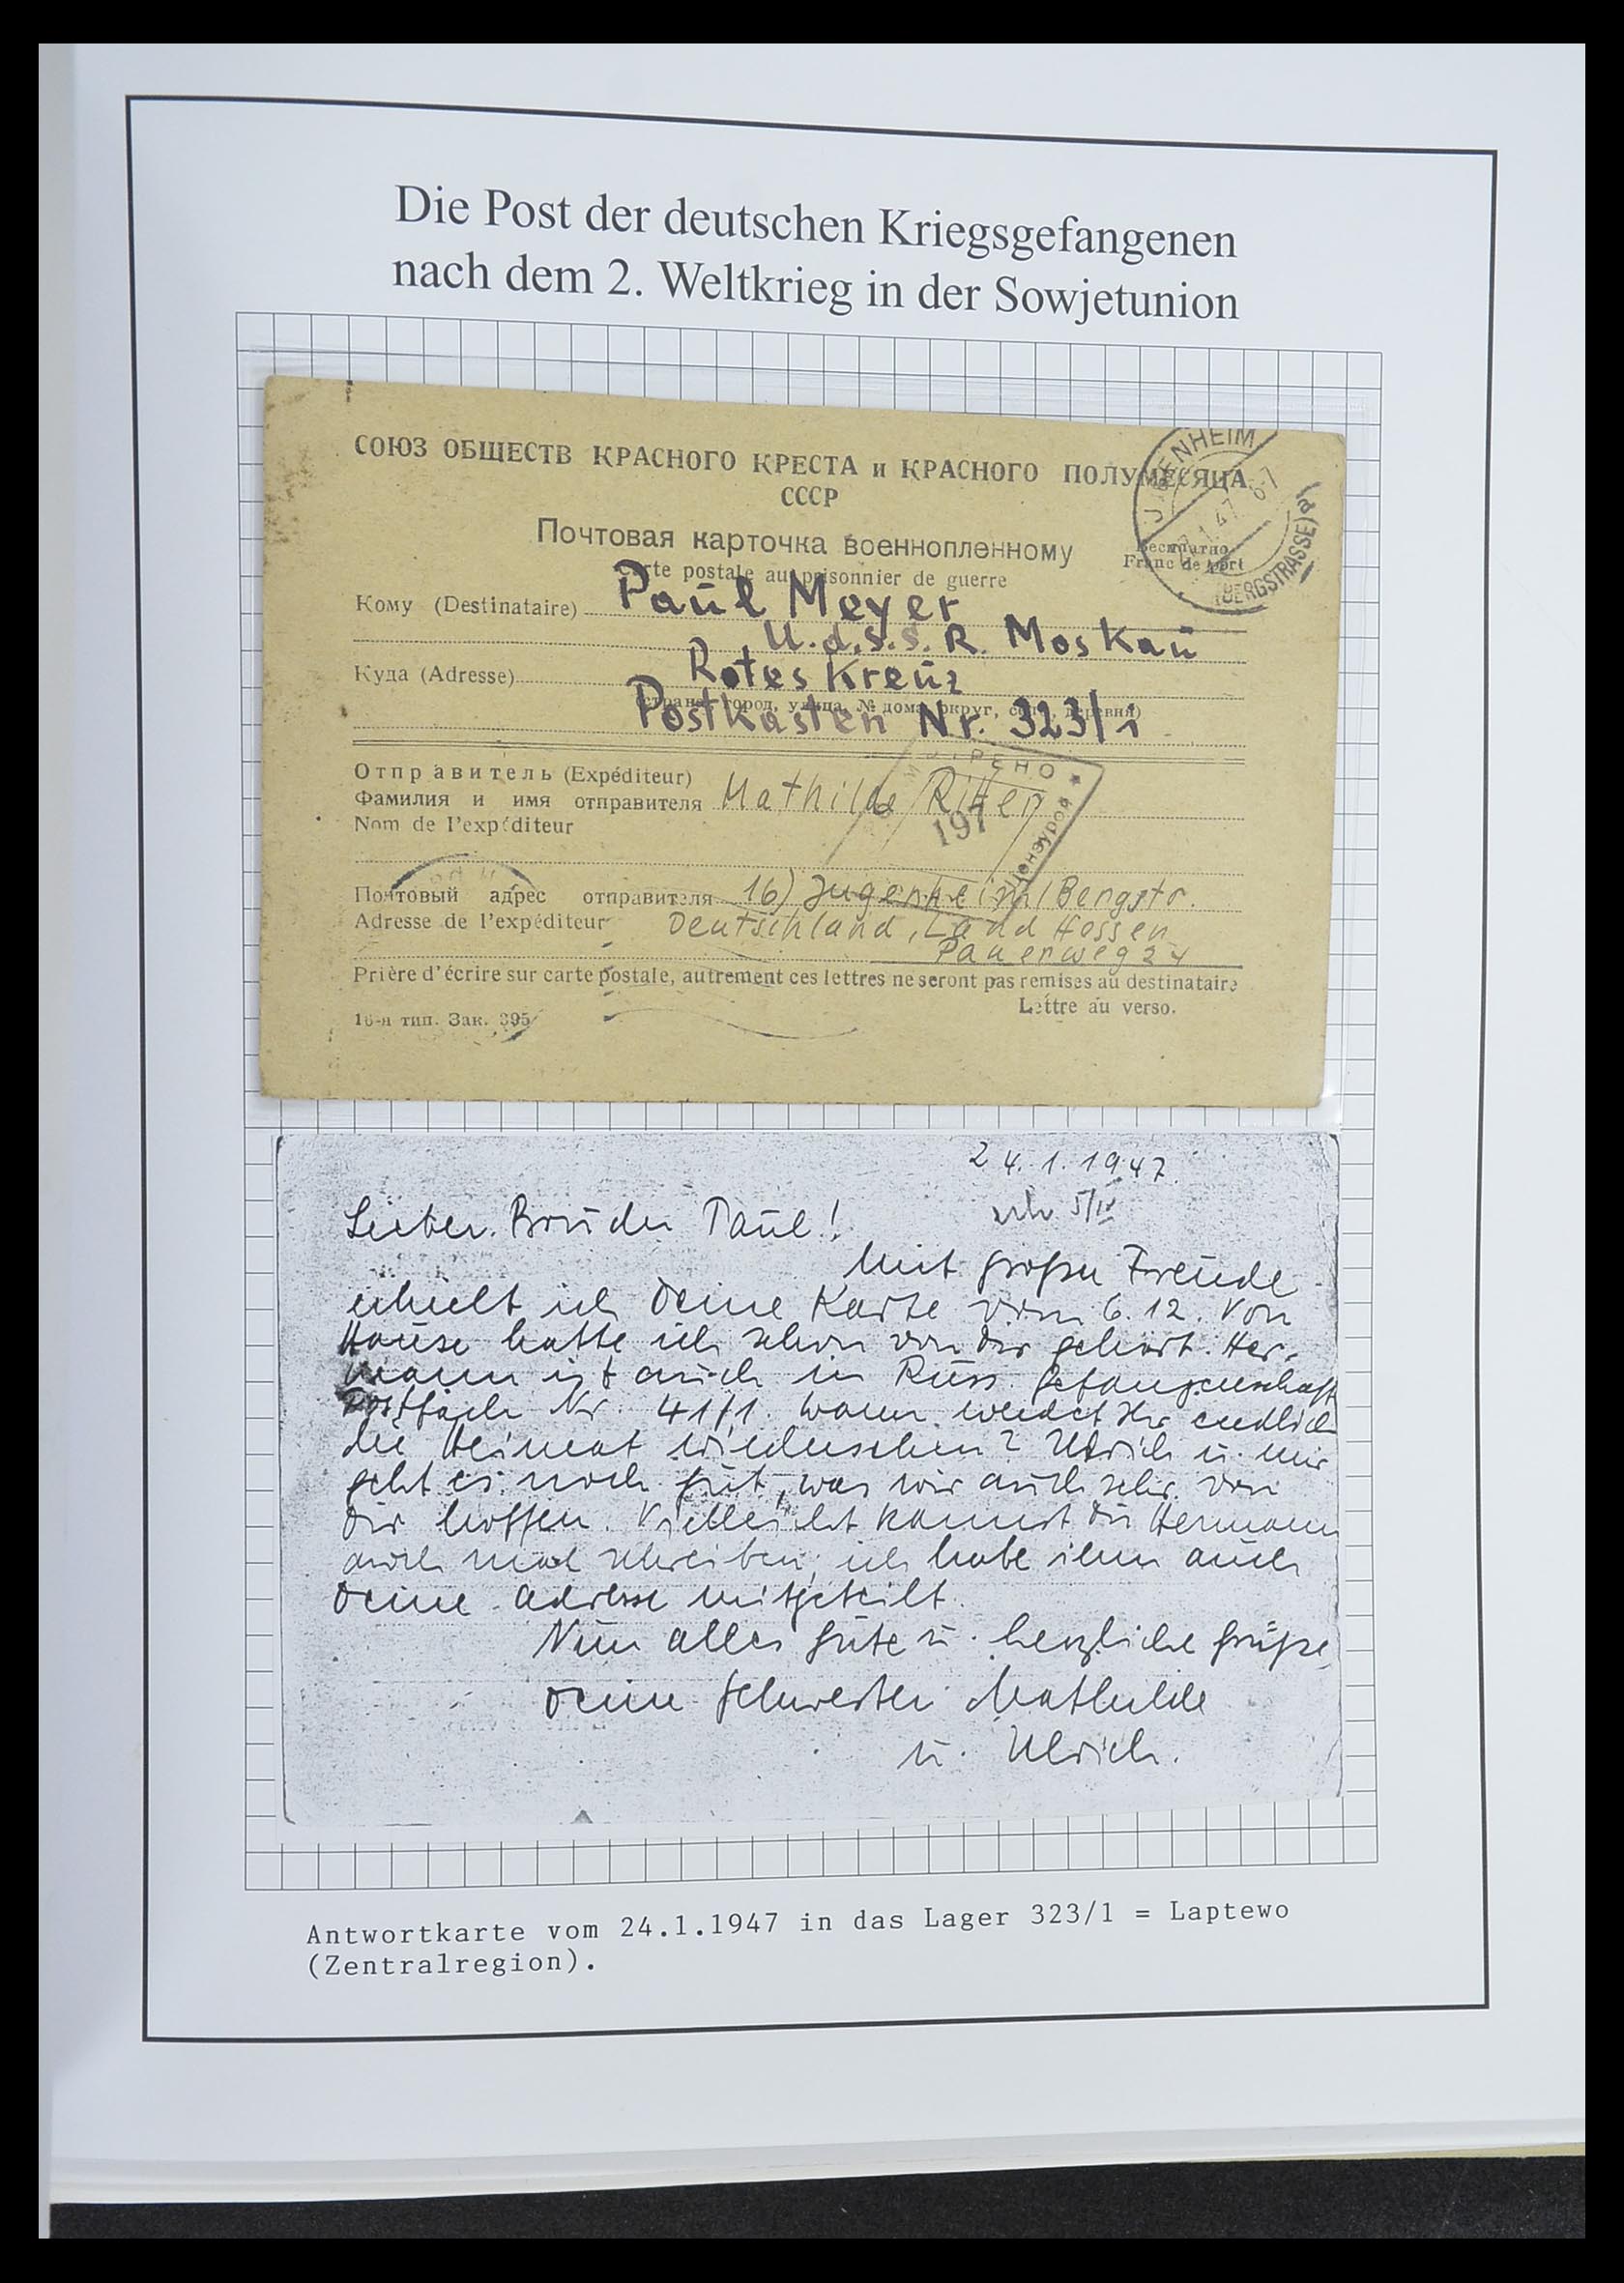 Die Post der deutschen Kriegsgefangenen
nach dem 2. Weltkrieg in der Sowjetunion
СОЮЗ ОБЩЕСТВ КРАСНОГО КРЕСТА и КРАСНОГО ПОЛУМЕСЯЦА
СССР
Почтовая карточка военнопленному
Carte postale au prisonnier de guerre
Бесплатно
Franc de port
JUGENHEIM
(BERGSTRASSE)
Кому (Destinataire) Paul Meyer
U.d.S.S.R. Moskau
Куда (Adresse) Rotes Kreuz
(страна, город, улица, № дома, округ, село, деревня)
Postkasten Nr. 323/1
Отправитель (Expéditeur)
Фамилия и имя отправителя Mathilde Ritter
Nom de l'expéditeur
197
Цензурой
Почтовый адрес отправителя 16) Jugenheim/Bergstr.
Adresse de l'expéditeur Deutschland, Land Hessen
Pauerweg 24
Prière d'écrire sur carte postale, autrement ces lettres ne seront pas remises au destinataire
Lettre au verso.
16-я тип. Зак. 395
24.1.1947.
Lieber Bruder Paul!
Mit großer Freude
erhielt ich Deine Karte vom 6.12. Von
Hause hatte ich schon von dir gehört. Her-
mann ist auch in Russ. Gefangenschaft
Postfach Nr. 41/1. Wann werdet Ihr endlich
die Heimat wiedersehen? Ulrich u. mir
geht es noch gut, was wir auch sehr von
Dir hoffen. Vielleicht kannst du Hermann
auch mal schreiben, ich habe ihm auch
Deine Adresse mitgeteilt.
Nun alles Gute u. herzliche Grüße
Deine Schwester Mathilde
u. Ulrich.
Antwortkarte vom 24.1.1947 in das Lager 323/1 = Laptewo
(Zentralregion).